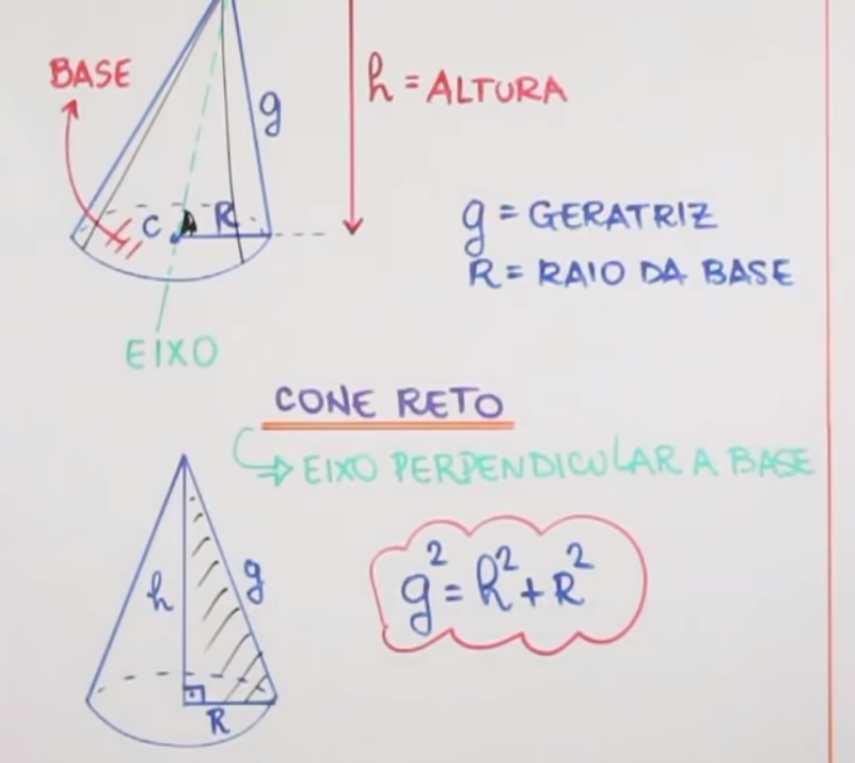 BASE
g
h = ALTURA
C R
g = GERATRIZ
R = RAIO DA BASE
EIXO
CONE RETO
EIXO PERPENDICULAR A BASE
h g
g² = h² + R²
R